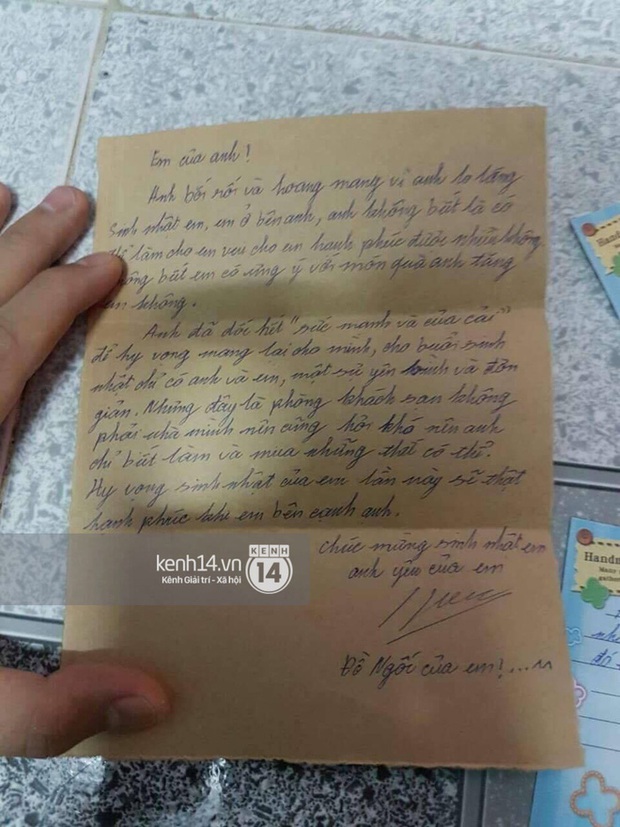 Em của anh!
Anh bối rối và hoang mang vì anh lo lắng
Sinh nhật em, em ở bên anh, anh không biết là có
thể làm cho em vui cho em hạnh phúc được nhiều không
không biết em có ưng ý với món quà anh tặng
em không.
Anh đã dốc hết "sức mạnh và của cải"
để hy vọng mang lại cho mình, cho buổi sinh
nhật chỉ có anh và em, một sự yên bình và đơn
giản. Nhưng đây là phòng khách sạn không
phải nhà mình nên cũng hơi khó nên anh
chỉ biết làm và mua những thứ có thể.
Hy vọng sinh nhật của em lần này sẽ thật
hạnh phúc khi em bên cạnh anh.
Chúc mừng sinh nhật em
anh yêu của em
Đồ Ngốc của em!...
kenh14.vn
Kênh Giải trí - Xã hội
KÊNH
14
Hand
Handm